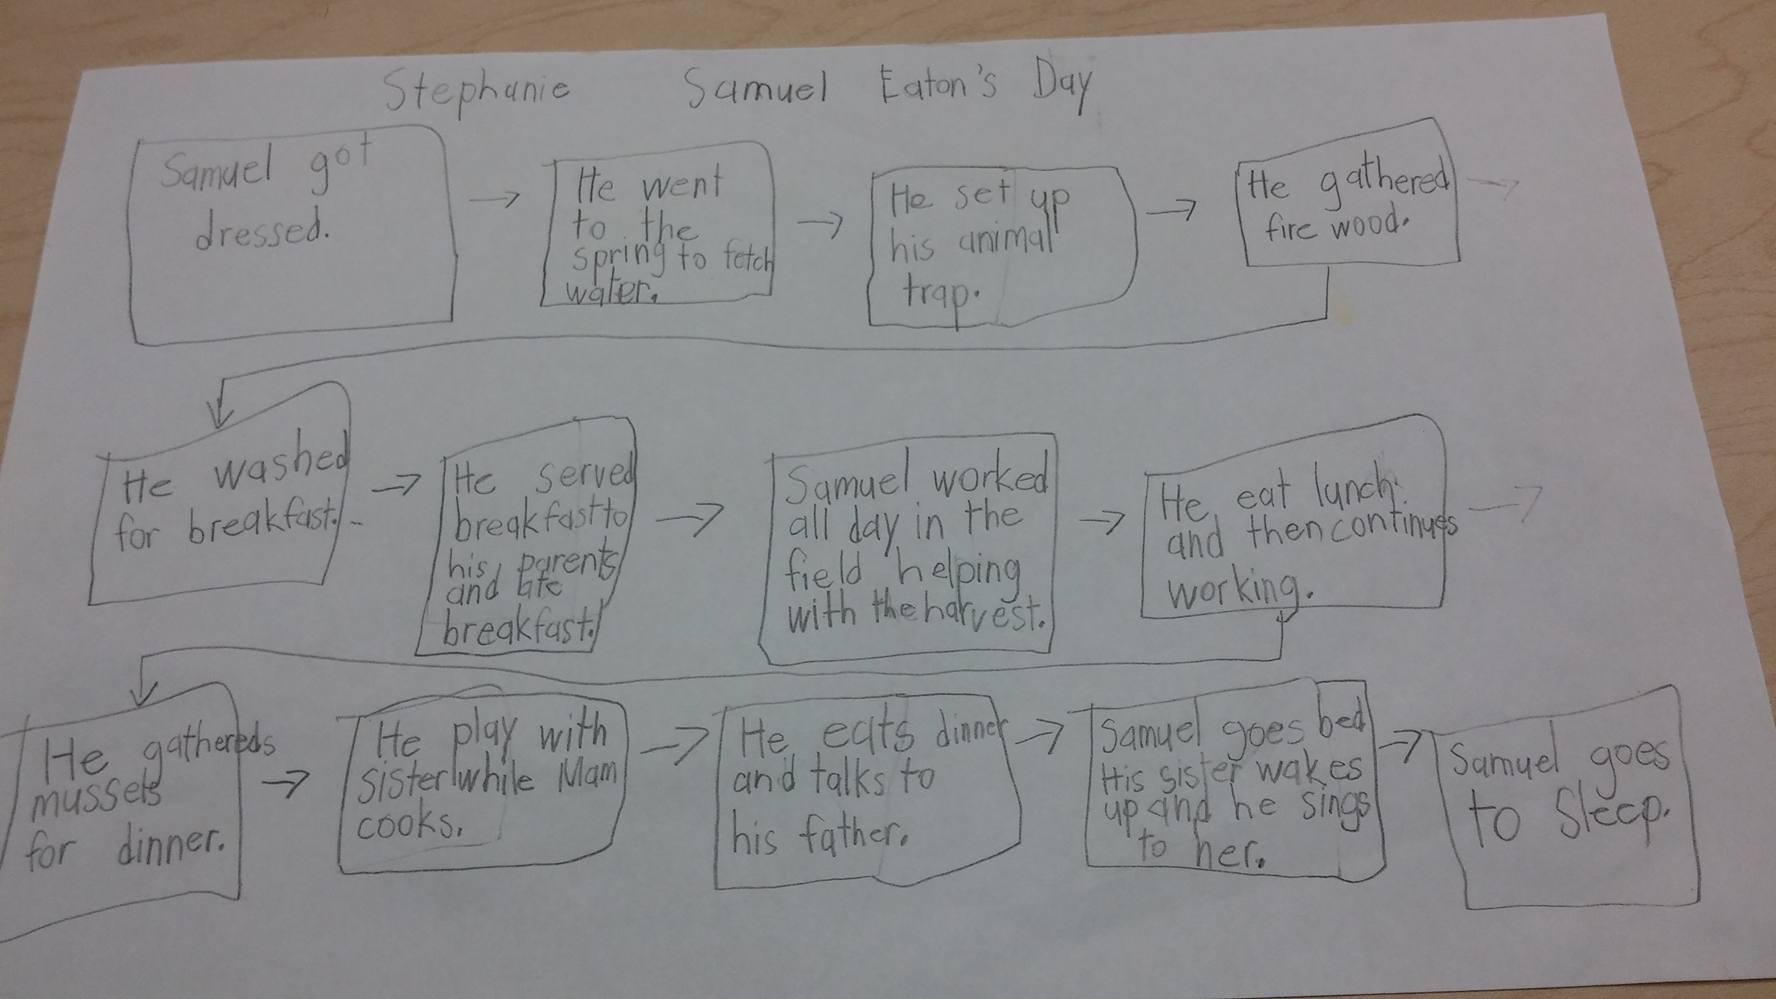 Stephanie Samuel Eaton's Day
Samuel got
dressed.
He went
to the
spring to fetch
water.
He set up
his animal
trap.
He gathered
fire wood.
He washed
for breakfast.
He served
breakfast to
his parents
and ate
breakfast.
Samuel worked
all day in the
field helping
with the harvest.
He eat lunch
and then continues
working.
He gathereds
mussels
for dinner.
He play with
sister while Mam
cooks.
He eats dinner
and talks to
his father.
Samuel goes bed
His sister wakes
up and he sings
to her.
Samuel goes
to sleep.